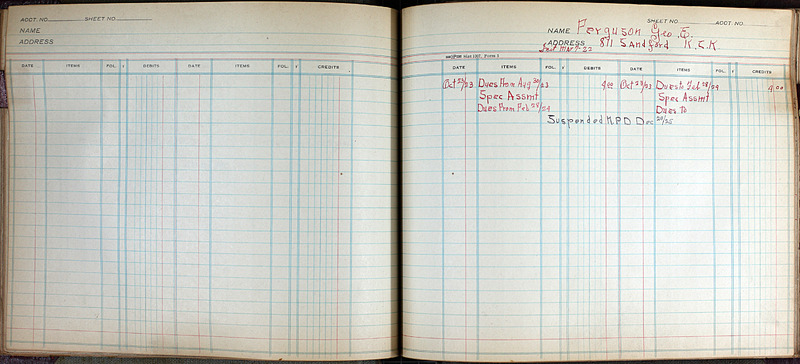 ACCT. NO. SHEET NO.
NAME
ADDRESS
DATE ITEMS FOL. r DEBITS DATE ITEMS FOL. r CREDITS
SHEET NO. ACCT. NO.
NAME Ferguson Geo. E.
ADDRESS 811 Sandford K.C.K.
Form 1
DATE ITEMS FOL. r DEBITS DATE ITEMS FOL. r CREDITS
Oct 23/23 Dues From Aug 30/23 4 00 Oct 23/23 Dues to Feb 28/24 4 00
Spec Assmt Spec Assmt
Dues From Feb 28/24 Dues to
Suspended N P D Dec 28/25